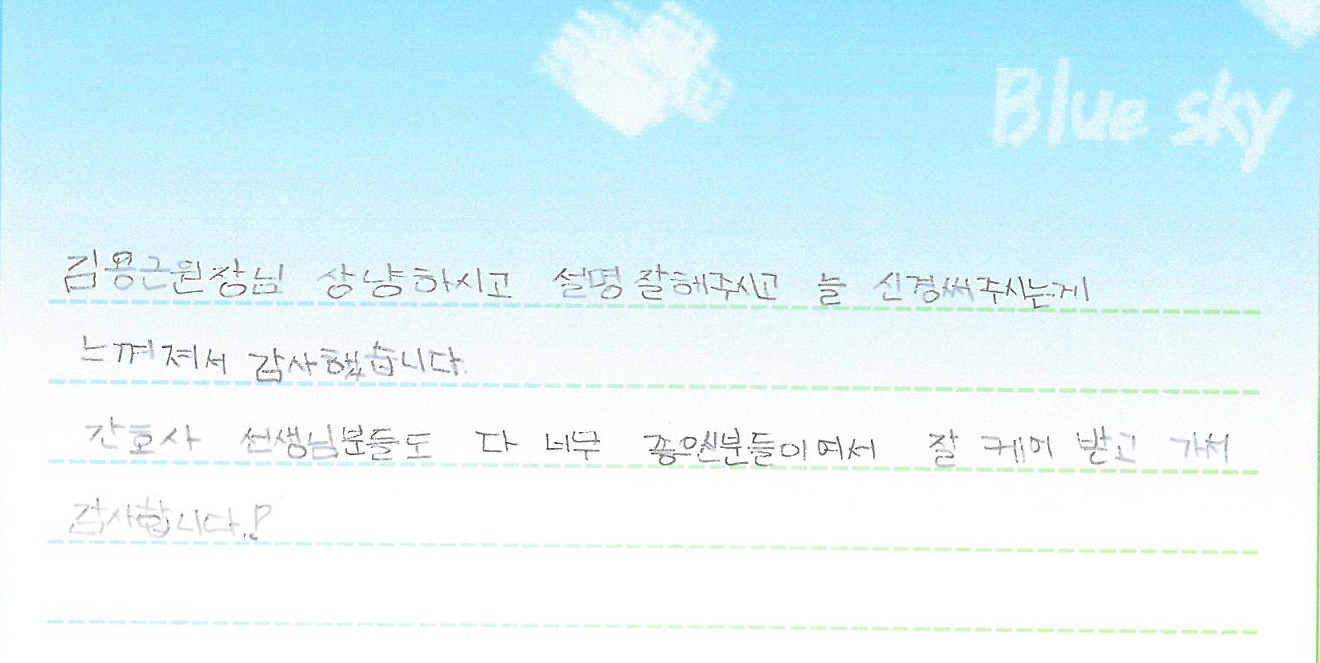 Blue sky
김용근원장님 상냥하시고 설명 잘해주시고 늘 신경써주시는게
느껴져서 감사했습니다.
간호사 선생님분들도 다 너무 좋으신분들이여서 잘 케어 받고 가서
감사합니다.!